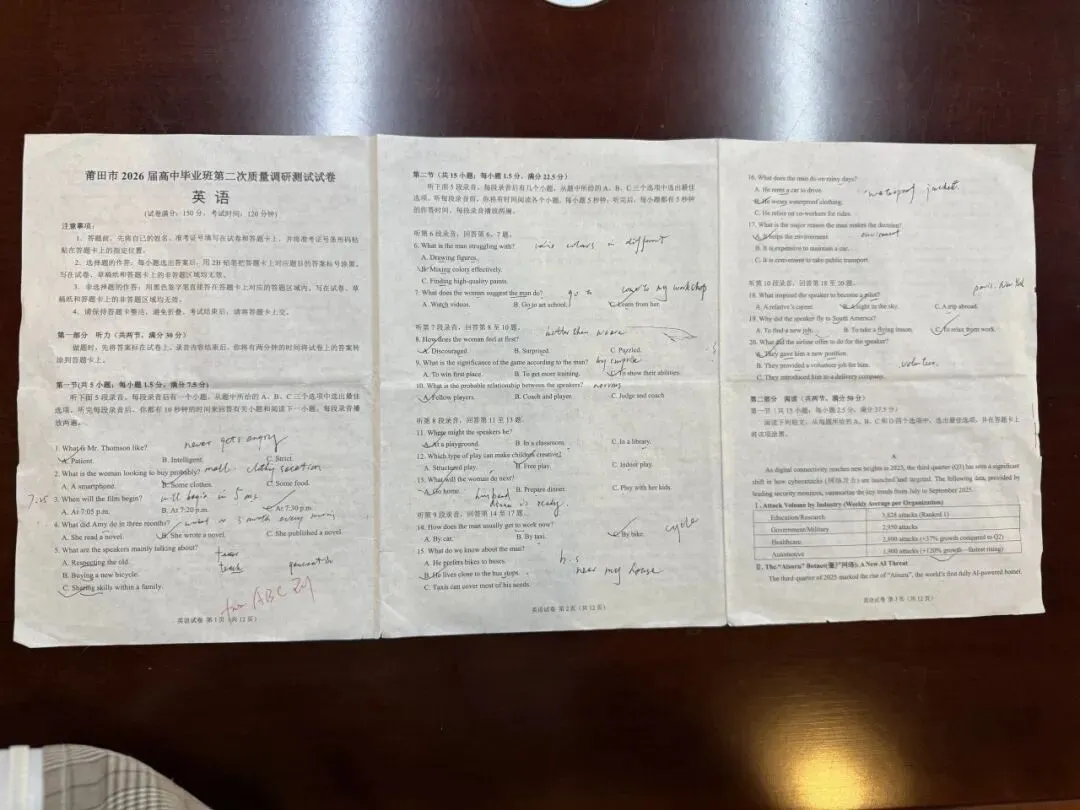 莆田市 2026 届高中毕业班第二次质量调研测试试卷
英 语
(试卷满分：150 分，考试时间：120 分钟)
注意事项：
1. 答题前，先将自己的姓名、准考证号填写在试卷和答题卡上，并将准考证号条形码粘
贴在答题卡上的指定位置。
2. 选择题的作答：每小题选出答案后，用 2B 铅笔把答题卡上对应题目的答案标号涂黑。
写在试卷、草稿纸和答题卡上的非答题区域均无效。
3. 非选择题的作答：用黑色签字笔直接答在答题卡上对应的答题区域内。写在试卷、草
稿纸和答题卡上的非答题区域均无效。
4. 请保持答题卡整洁，避免折叠。考试结束后，请将答题卡上交。
第一部分 听力（共两节，满分 30 分）
做题时，先将答案标在试卷上。录音内容结束后，你将有两分钟的时间将试卷上的答案转
涂到答题卡上。
第一节(共 5 小题；每小题 1.5 分，满分 7.5 分)
听下面 5 段录音。每段录音后有一个小题，从题中所给的 A、B、C 三个选项中选出最佳
选项。听完每段录音后，你都有 10 秒钟的时间来回答有关小题和阅读下一小题。每段录音播
放两遍。
never gets angry
1. What is Mr. Thomson like?
A. Patient. B. Intelligent. C. Strict.
2. What is the woman looking to buy probably? mall. clothing section
A. A smartphone. B. Some clothes. C. Some food.
7:25 3. When will the film begin? will begin in 5 ms
A. At 7:05 p.m. B. At 7:20 p.m. C. At 7:30 p.m.
4. What did Amy do in three months?
A. She read a novel. B. She wrote a novel. C. She published a novel.
5. What are the speakers mainly talking about?
A. Respecting the old.
B. Buying a new bicycle.
C. Sharing skills within a family.
teach
generation
英语试卷 第 1 页（共 12 页）
第二节（共 15 小题；每小题 1.5 分，满分 22.5 分）
听下面 5 段录音。每段录音后有几个小题，从题中所给的 A、B、C 三个选项中选出最佳
选项。听每段录音前，你将有时间阅读各个小题，每小题 5 秒钟；听完后，每小题都有 5 秒钟
的作答时间。每段录音播放两遍。
听第 6 段录音，回答第 6、7 题。
6. What is the man struggling with? colors in different
A. Drawing figures.
B. Mixing colors effectively.
C. Finding high-quality paints.
7. What does the woman suggest the man do? go to come to my workshop
A. Watch videos. B. Go to art school. C. Learn from her.
听第 7 段录音，回答第 8 至 10 题。
better than
8. How does the woman feel at first?
A. Discouraged. B. Surprised. C. Puzzled.
9. What is the significance of the game according to the man?
A. To win first place. B. To get more training. C. To show their abilities.
10. What is the probable relationship between the speakers? nervous
A. Fellow players. B. Coach and player. C. Judge and coach
听第 8 段录音，回答第 11 至 13 题。
11. Where might the speakers be?
A. At a playground. B. In a classroom. C. In a library.
12. Which type of play can make children creative?
A. Structured play. B. Free play. C. Indoor play.
13. What will the woman do next?
A. Go home. B. Prepare dinner. C. Play with her kids.
husband
dinner is ready.
听第 9 段录音，回答第 14 至 17 题。
14. How does the man usually get to work now? cycle
A. By car. B. By taxi. C. By bike.
15. What do we know about the man?
A. He prefers bikes to buses.
B. He lives close to the bus stops.
C. Taxis can cover most of his needs.
b.s
near my house
英语试卷 第 2 页（共 12 页）
16. What does the man do on rainy days?
A. He rents a car to drive. waterproof jacket.
B. He wears waterproof clothing.
C. He relies on co-workers for rides.
17. What is the major reason the man makes the decision?
A. It helps the environment.
B. It is expensive to maintain a car.
C. It is convenient to take public transport.
听第 10 段录音，回答第 18 至 20 题。
paris. New York
18. What inspired the speaker to become a pilot?
A. A relative's career. B. A sight in the sky. C. A trip abroad.
19. Why did the speaker fly to South America?
A. To find a new job. B. To take a flying lesson. C. To relax from work.
20. What did the airline offer to do for the speaker?
A. They gave him a new position.
B. They provided a volunteer job for him.
C. They introduced him to a delivery company.
第二部分 阅读（共两节，满分 50 分）
第一节（共 15 小题；每小题 2.5 分，满分 37.5 分）
阅读下列短文，从每题所给的 A、B、C 和 D 四个选项中，选出最佳选项，并在答题卡上
将该项涂黑。
A
As digital connectivity reaches new heights in 2025, the third quarter (Q3) has seen a significant
shift in how cyberattacks (网络攻击) are launched and targeted. The following data, provided by
leading security monitors, summarize the key trends from July to September 2025.
I. Attack Volume by Industry (Weekly Average per Organization)
Education/Research 3,828 attacks (Ranked 1)
Government/Military 2,950 attacks
Healthcare 2,500 attacks (+37% growth compared to Q2)
Automotive 1,900 attacks (+120% growth—fastest rising)
II. The "Aisuru" Botnet(僵尸网络): A New AI Threat
The third quarter of 2025 marked the rise of "Aisuru", the world's first fully AI-powered botnet.
英语试卷 第 3 页（共 12 页）